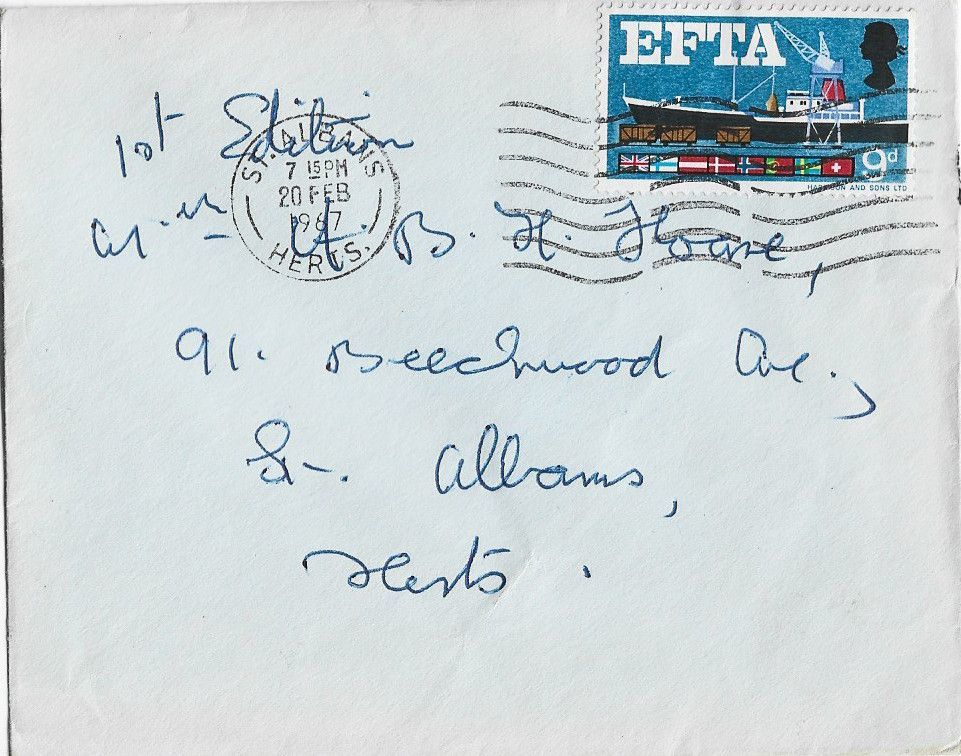 EFTA
9d
HARRISON AND SONS LTD
ST. ALBANS
7 15PM
20 FEB
1967
HERTS.
1st Edition
H. B. H. Howe,
91. Beechwood Ave.,
St. Albans,
Herts.